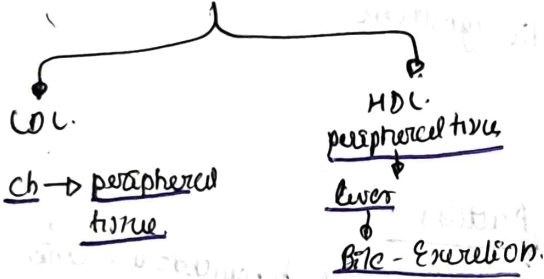 LDL.
HDL.
peripheral tissue
Ch → peripheral
tissue
liver
Bile - Excretion.